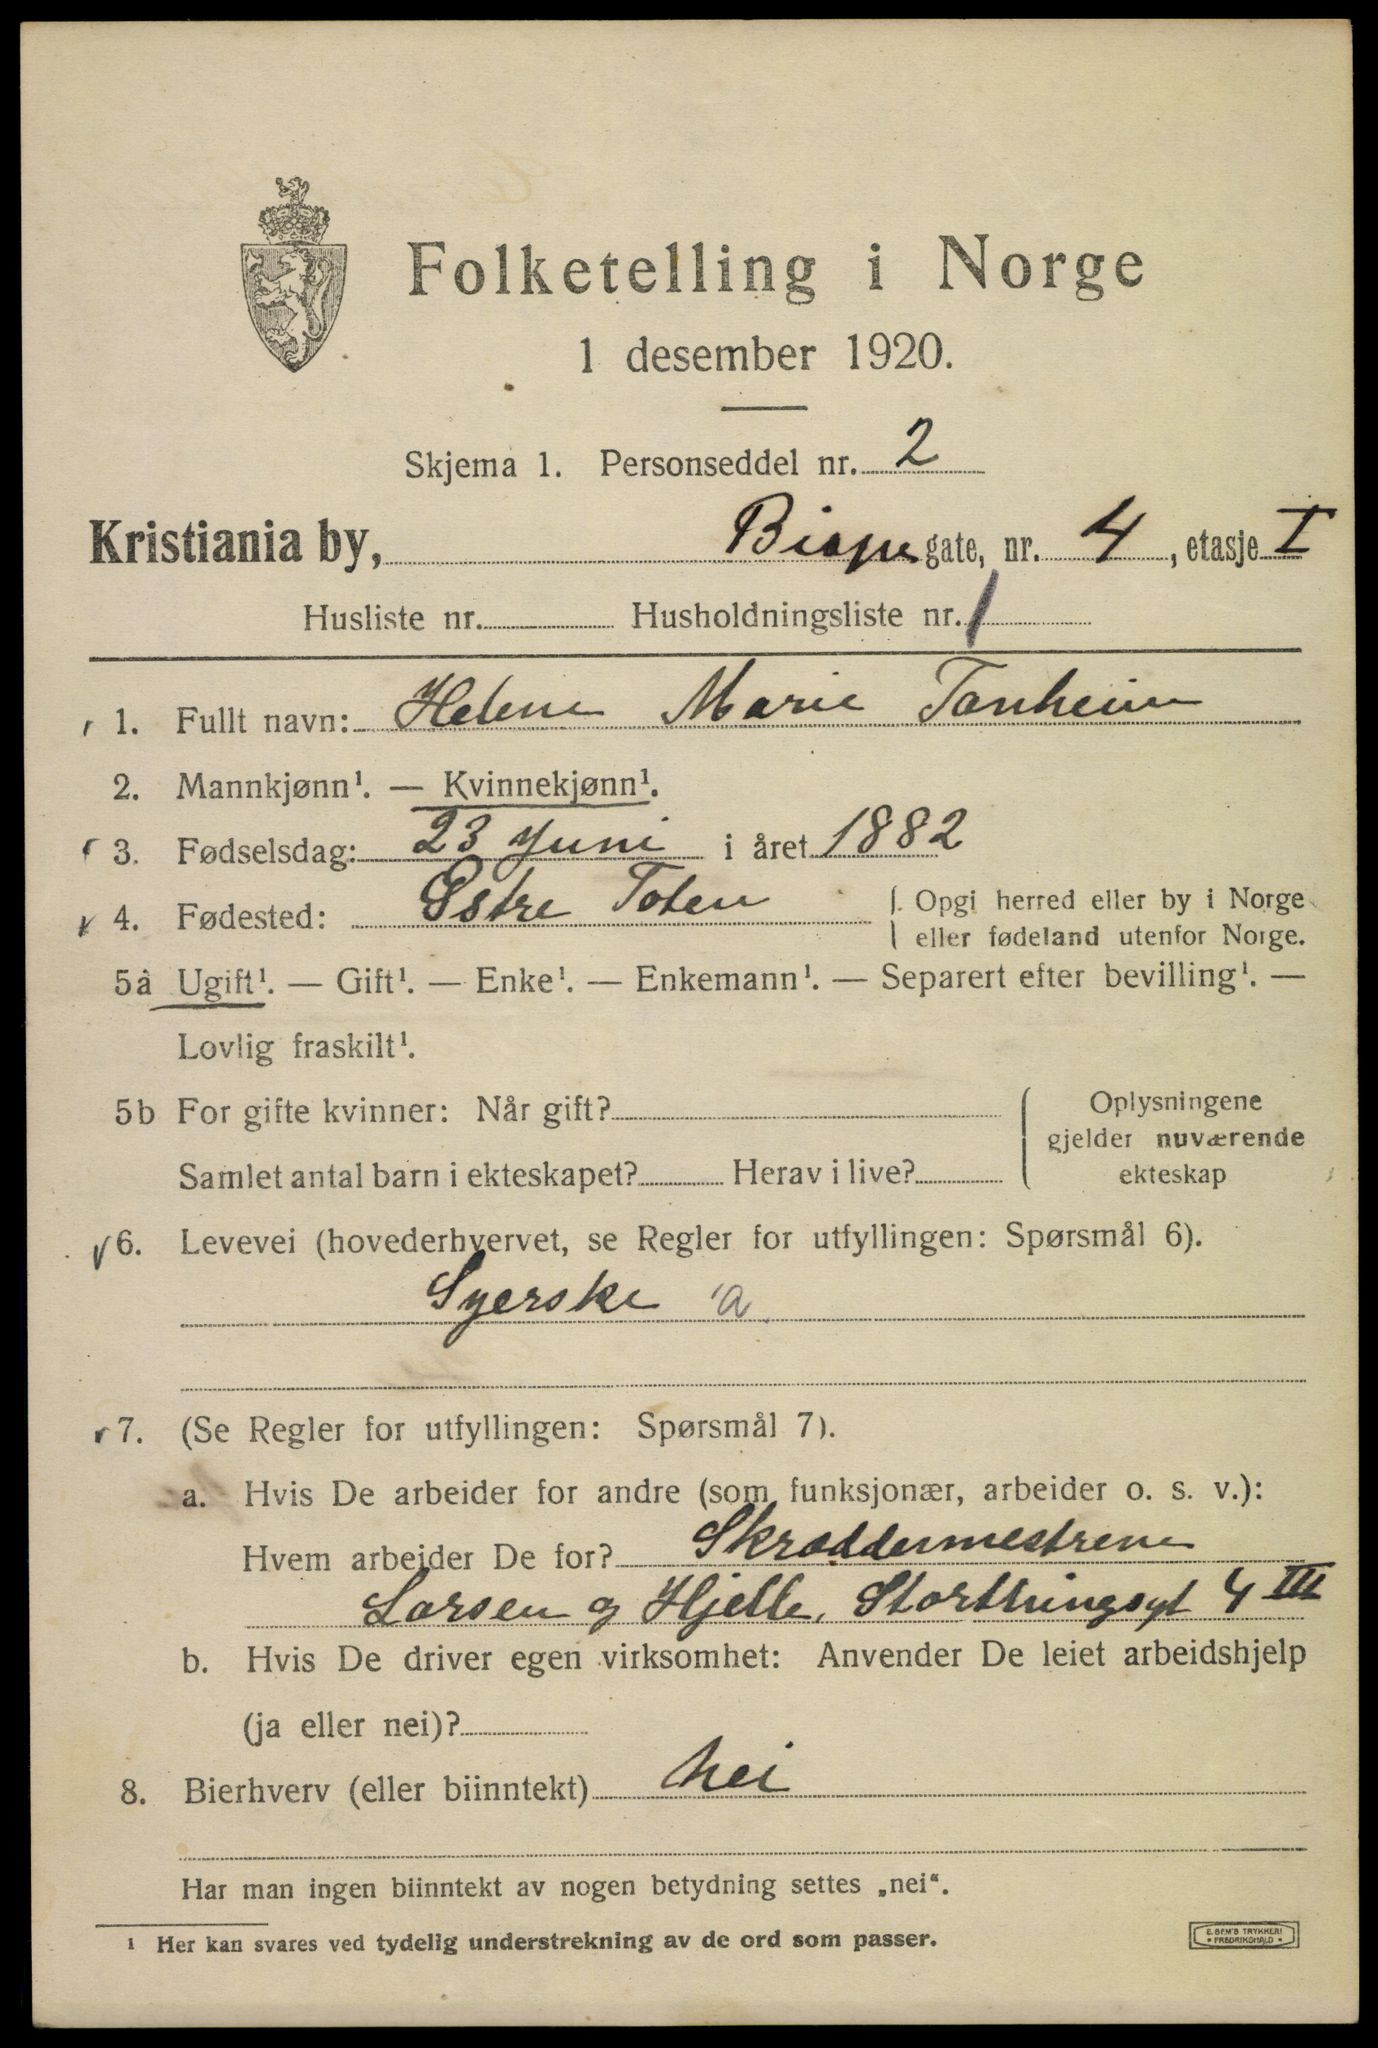 Folketelling i Norge
1 desember 1920.
Skjema 1. Personseddel nr. 2
Kristiania by, gate, nr. 4, etasje I
Husliste nr. Husholdningsliste nr. 1
1. Fullt navn: Helene Marie Tanheim
2. Mannkjønn¹. — Kvinnekjønn¹.
3. Fødselsdag: 23 Juni i året 1882
4. Fødested: Østre Toten { Opgi herred eller by i Norge
eller fødeland utenfor Norge.
5a Ugift¹. — Gift¹. — Enke¹. — Enkemann¹. — Separert efter bevilling¹. —
Lovlig fraskilt¹.
5b For gifte kvinner: Når gift?
Samlet antal barn i ekteskapet? Herav i live?
{ Oplysningene
gjelder nuværende
ekteskap
6. Levevei (hovederhvervet, se Regler for utfyllingen: Spørsmål 6).
Syerske a
7. (Se Regler for utfyllingen: Spørsmål 7).
a. Hvis De arbeider for andre (som funksjonær, arbeider o. s. v.):
Hvem arbeider De for? Skræddermestrene
Larsen og Hjelle, Storthingsgt 4 III
b. Hvis De driver egen virksomhet: Anvender De leiet arbeidshjelp
(ja eller nei)?
8. Bierhverv (eller biinntekt) Nei
Har man ingen biinntekt av nogen betydning settes „nei“.
¹ Her kan svares ved tydelig understrekning av de ord som passer.
E. SEM'S TRYKKERI
FREDRIKSHALD